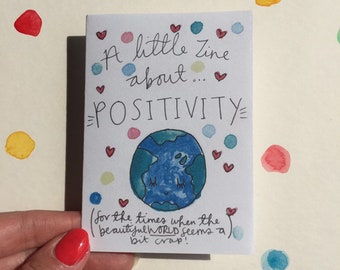 A little zine
about...
POSITIVITY
(for the times when the
beautiful WORLD seems a
bit crap!)